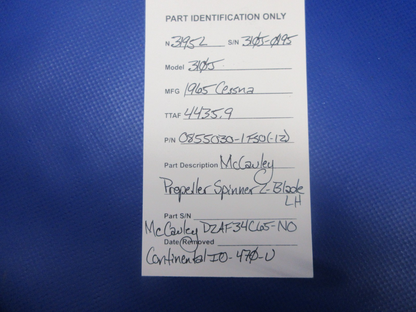 PART IDENTIFICATION ONLY
N 3195L S/N 310J-0195
Model 310J
MFG 1965 Cessna
TTAF 4435.9
P/N 0855030-1F30(-12)
Part Description McCauley
Propeller Spinner 2-Blade
LH
Part S/N
McCauley D2AF34C65-NO
Date Removed
Continental IO-470-U